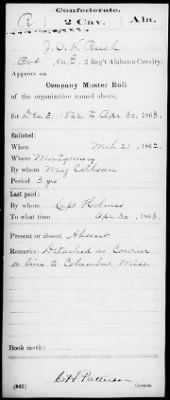 Confederate.
R 2 Cav. Ala.
J. S. K. Rush
Pvt, Co. B, 2 Reg't Alabama Cavalry.
Appears on
Company Muster Roll
of the organization named above,
for Dec 31, 1862 to Apr 30, 1863.
Enlisted:
When Mch 21, 1862.
Where Montgomery
By whom Maj Calhoun
Period 3 yrs
Last paid:
By whom Capt Holmes
To what time Apr 30, 1863.
Present or absent Absent
Remarks: Detached as Courier
on line to Columbus, Miss.
Book mark:
(642) Copyist.